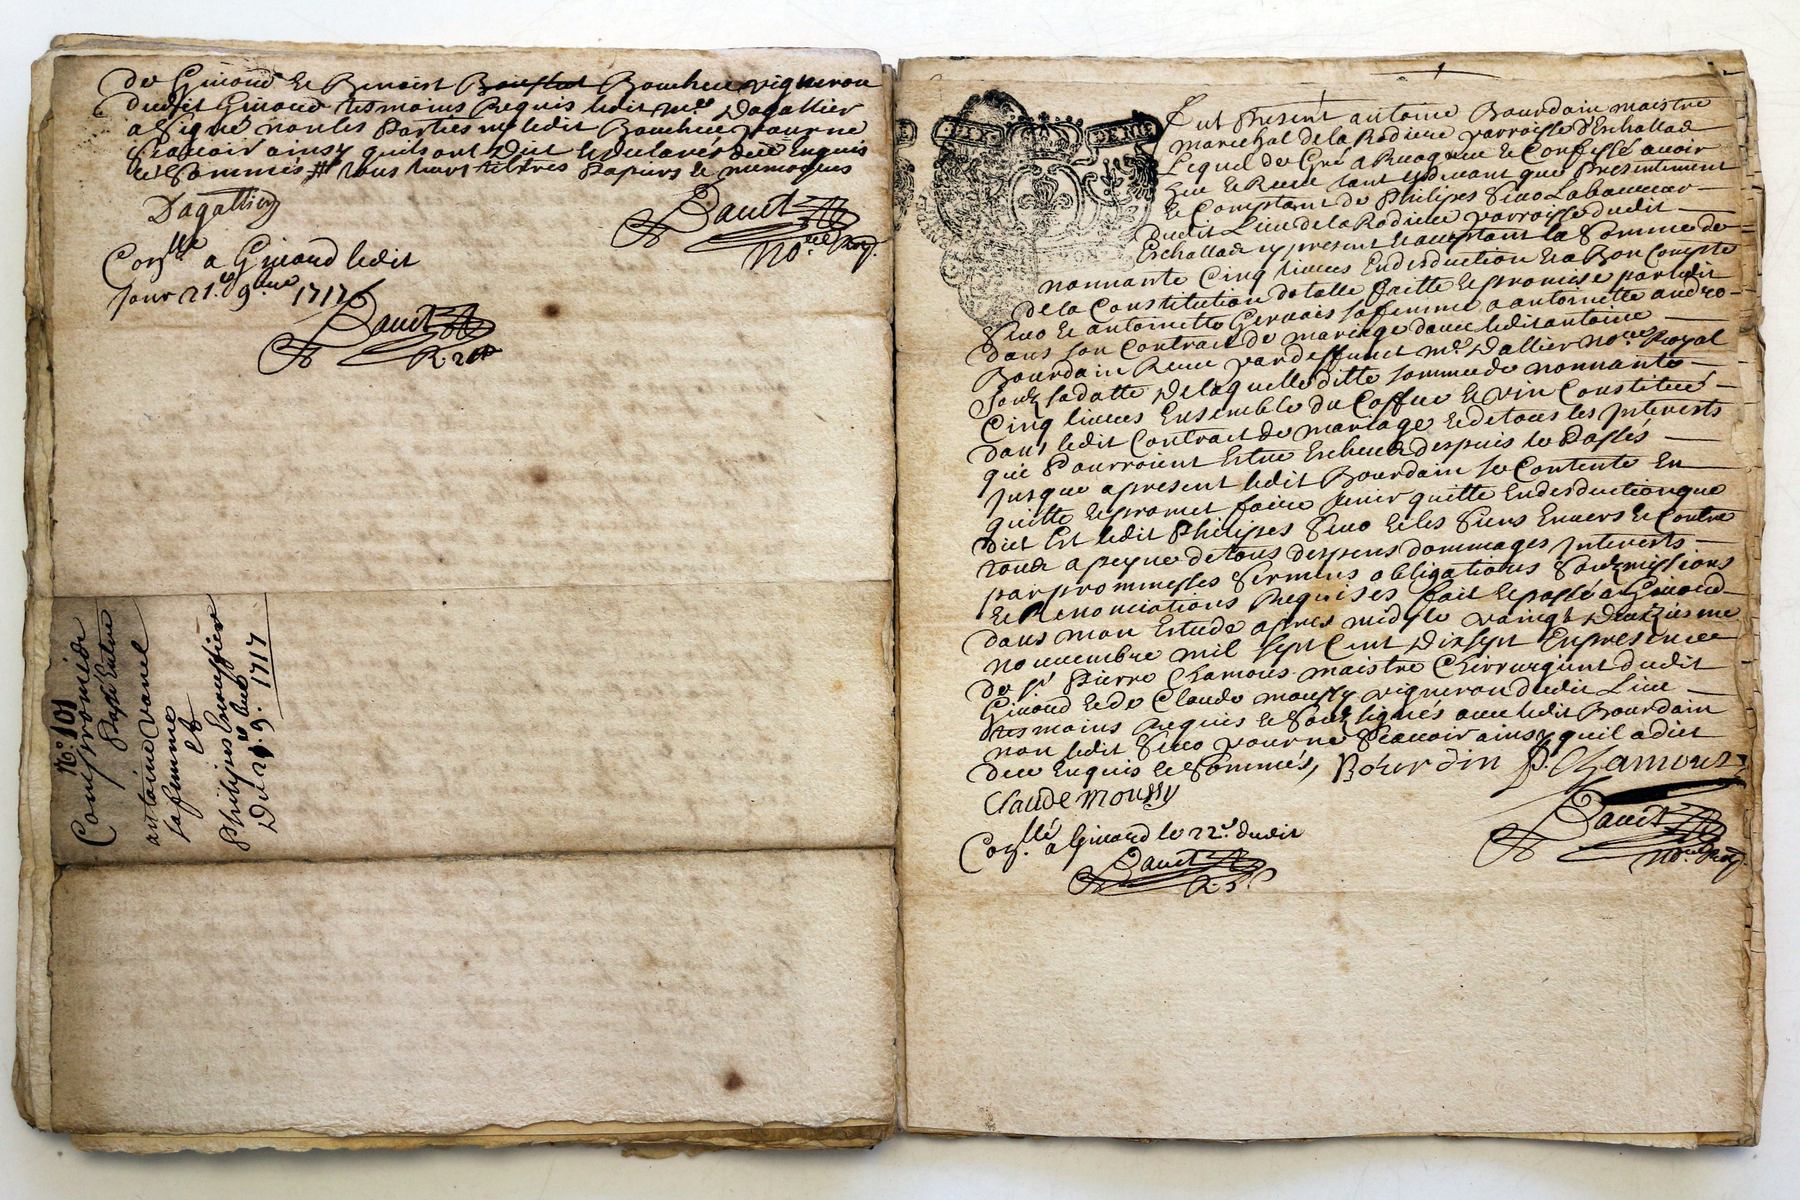 de Givord & Benoist Boucher vigneron
dudit Givord tesmoins Requis ledit Mre Dagallier
a Signé non les Parties ni ledit Boucher pour ne
Scavoir ainsy quils ont Dit & declaré de ce Enquis
et Sommés # tous leurs tiltres Papiers & memoires
Dagallier
Dauet
Nore Roy.
Conlle a Givord ledit
Jour 21e 9bre 1717
Dauet
No. 101
Compromis
Passé Entre
antoine
sa femme
et
Philipes
Du 21e 9bre 1717
DIX DENIE
Fut Present antoine Bourdain maistre
marechal de la Rodiere parroisse d'Eschallad
Lequel de Gré a Recogneu & Confessé avoir
Eu & Receu tant cydevant que Presentement
& Comptant de Philipes Laboureur
dudit Lieu de la Rodiere parroisse dudit
Eschallad cy present & acceptant la Somme de
nonnante Cinq livres En desduction & a Bon Compte
de la Constitution dotalle faitte & promise par ledit
& antoinette Gervais sa femme a antoinette andro-
dans son Contrat de mariage avec ledit antoine
Bourdain Receu par deffunct Mre Dallier nore Royal
Soubz sa datte De laquelle ditte somme de nonnante
Cinq livres Ensemble du Coffre & vin Constitué
dans ledit Contract de mariage & de tous les Interests
qui Pourroient Estre Escheus despuis le Passés
jusque a present ledit Bourdain se Contente En
quitte & promet faire tenir quitte En desduction que
dict Est ledit Philipes & les Siens Envers & Contre
tous a peyne de tous despens dommages Interests
par prommesses Serments obligations Soubzmissions
& Renonciations Requises fait & passé a Givord
dans mon Estude apres midy le vaingt Deuxiesme
novembre mil sept Cent Dixsept En presence
de Sr Pierre Chamous maistre Chirurgient dudit
Givord & de Claude moussy vigneron dudit Lieu
tesmoins Requis & Soubz signés avec ledit Bourdain
non ledit pour ne Scavoir ainsy quil a dict
de ce Enquis & Sommés, Bourdin P. Chamous
Claude Moussy
Dauet
Nore Roy.
Conllé a Givord le 22e dudit
Dauet